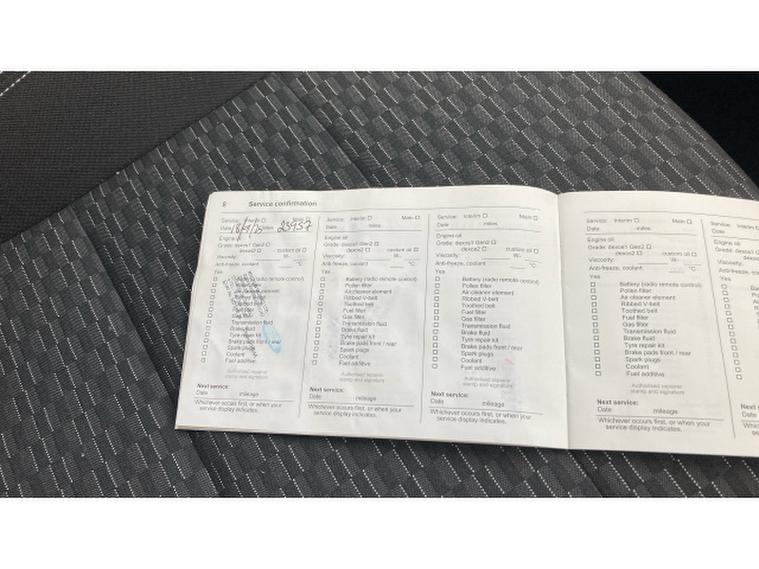 8 Service confirmation
Service: Interim Main
Date miles 23957
Engine oil
Grade: dexos1 Gen2
dexos2 custom oil
Viscosity: W-
Anti-freeze, coolant °C
Yes
Battery (radio remote control)
Pollen filter
Air cleaner element
Ribbed V-belt
Toothed belt
Fuel filter
Gas filter
Transmission fluid
Brake fluid
Tyre repair kit
Brake pads front / rear
Spark plugs
Coolant
Fuel additive
Authorised repairer
stamp and signature
Next service:
Date mileage
Whichever occurs first, or when your
service display indicates.
Service: Interim Main
Date miles
Engine oil
Grade: dexos1 Gen2
dexos2 custom oil
Viscosity: W-
Anti-freeze, coolant °C
Yes
Battery (radio remote control)
Pollen filter
Air cleaner element
Ribbed V-belt
Toothed belt
Fuel filter
Gas filter
Transmission fluid
Brake fluid
Tyre repair kit
Brake pads front / rear
Spark plugs
Coolant
Fuel additive
Authorised repairer
stamp and signature
Next service:
Date mileage
Whichever occurs first, or when your
service display indicates.
Service: Interim Main
Date miles
Engine oil
Grade: dexos1 Gen2
dexos2 custom oil
Viscosity: W-
Anti-freeze, coolant °C
Yes
Battery (radio remote control)
Pollen filter
Air cleaner element
Ribbed V-belt
Toothed belt
Fuel filter
Gas filter
Transmission fluid
Brake fluid
Tyre repair kit
Brake pads front / rear
Spark plugs
Coolant
Fuel additive
Authorised repairer
stamp and signature
Next service:
Date mileage
Whichever occurs first, or when your
service display indicates.
Service: Interim Main
Date miles
Engine oil
Grade: dexos1 Gen2
dexos2 custom oil
Viscosity: W-
Anti-freeze, coolant °C
Yes
Battery (radio remote control)
Pollen filter
Air cleaner element
Ribbed V-belt
Toothed belt
Fuel filter
Gas filter
Transmission fluid
Brake fluid
Tyre repair kit
Brake pads front / rear
Spark plugs
Coolant
Fuel additive
Authorised repairer
stamp and signature
Next service:
Date mileage
Whichever occurs first, or when your
service display indicates.
Service: Inter
Date
Engine oil
Grade: dexos
Viscosity:
Anti-freeze, co
Yes
Next serv
Date
Whicheve
service